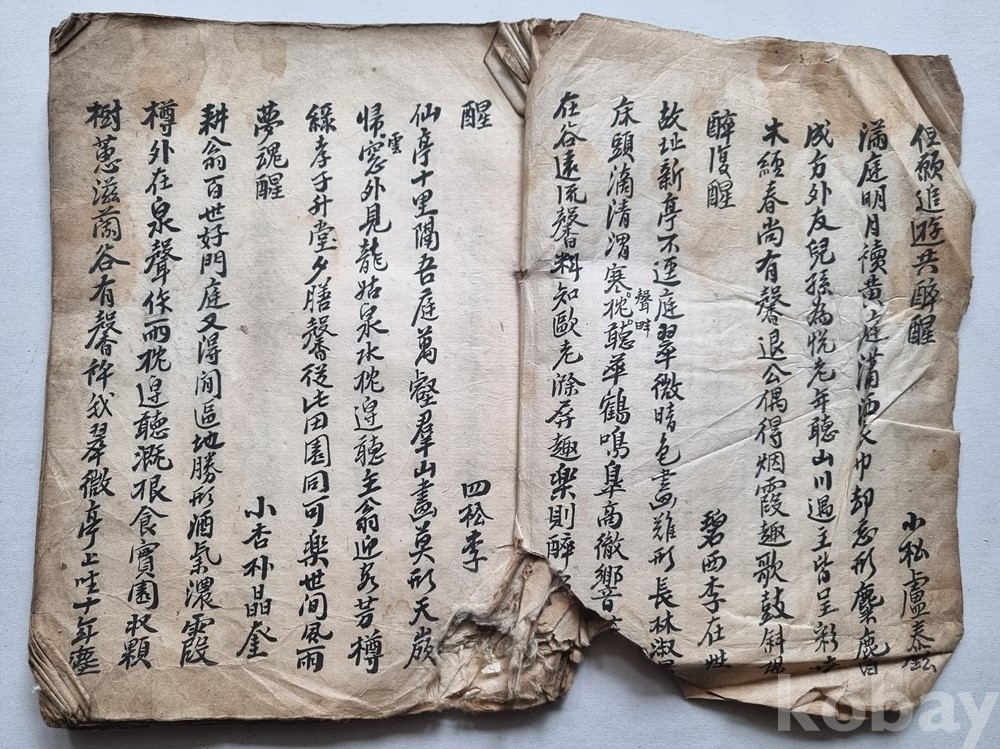 但願追遊共醉醒 小松盧泰鉉
滿庭明月讀黃庭瀟洒 巾却忘形麋鹿自
成方外友兒孫為悅老年聽山川遇主皆呈彩
木經春尚有馨退公偶得烟霞趣歌鼓斜
醉復醒 碧西李在
故址新亭不違庭翠微暗色畵難形長林淑
床頭滴清渭寒枕聽華鶴鳴臯高徹響
聲畔
在谷遠流馨料知歐老滁屛趣樂則醉
醒 四松李
仙亭十里隔吾庭萬壑羣山畵莫形天嶺
歸窓外見龍姑泉水枕邊聽主翁迎客芳樽
雲
綠孝子升堂夕膳馨從此田園同可樂世間風雨
夢魂醒 小杏朴晶奎
耕翁百世好門庭又得閒區地勝形酒氣濃霞
樽外在泉聲作雨枕邊聽溉根食實園收顆
樹蕙滋蘭谷有馨許我翠微亭上 十年塵
kobay